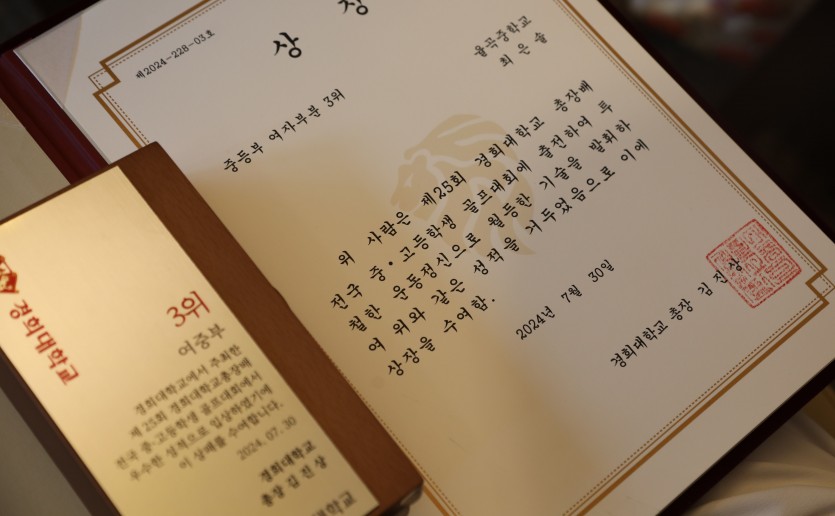 상 장
제2024-228-03호
율곡중학교
최 은 솔
중등부 여자부분 3위
위 사람은 제25회 경희대학교 총장배
전국 중·고등학생 골프대회에 출전하여 투
철한 운동정신으로 월등한 기술을 발휘하
여 위와 같은 성적을 거두었음으로 이에
상장을 수여함.
2024년 7월 30일
경희대학교 총장 김 진 상
경희대학교
3위
여중부
경희대학교에서 주최한
제 25회 경희대학교총장배
전국 중·고등학생 골프대회에서
우수한 성적으로 입상하였기에
이 상패를 수여합니다.
2024. 07. 30
경희대학교
총장 김 진 상
대학교